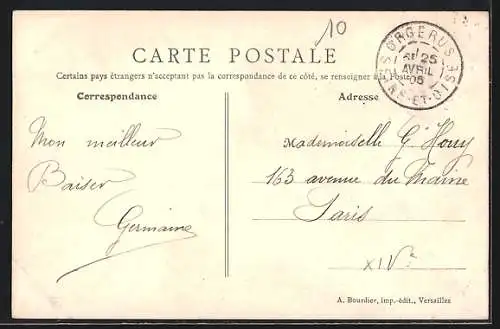 10
CARTE POSTALE
Certains pays étrangers n'acceptant pas la correspondance de ce côté, se renseigner à la Poste
Correspondance
Adresse
ORGERUS
25
AVRIL
05
SEINE-ET-OISE
Mon meilleur
Baiser
Germaine
Mademoiselle G. Houy
163 avenue du Maine
Paris
XIVe
A. Bourdier, imp.-édit., Versailles